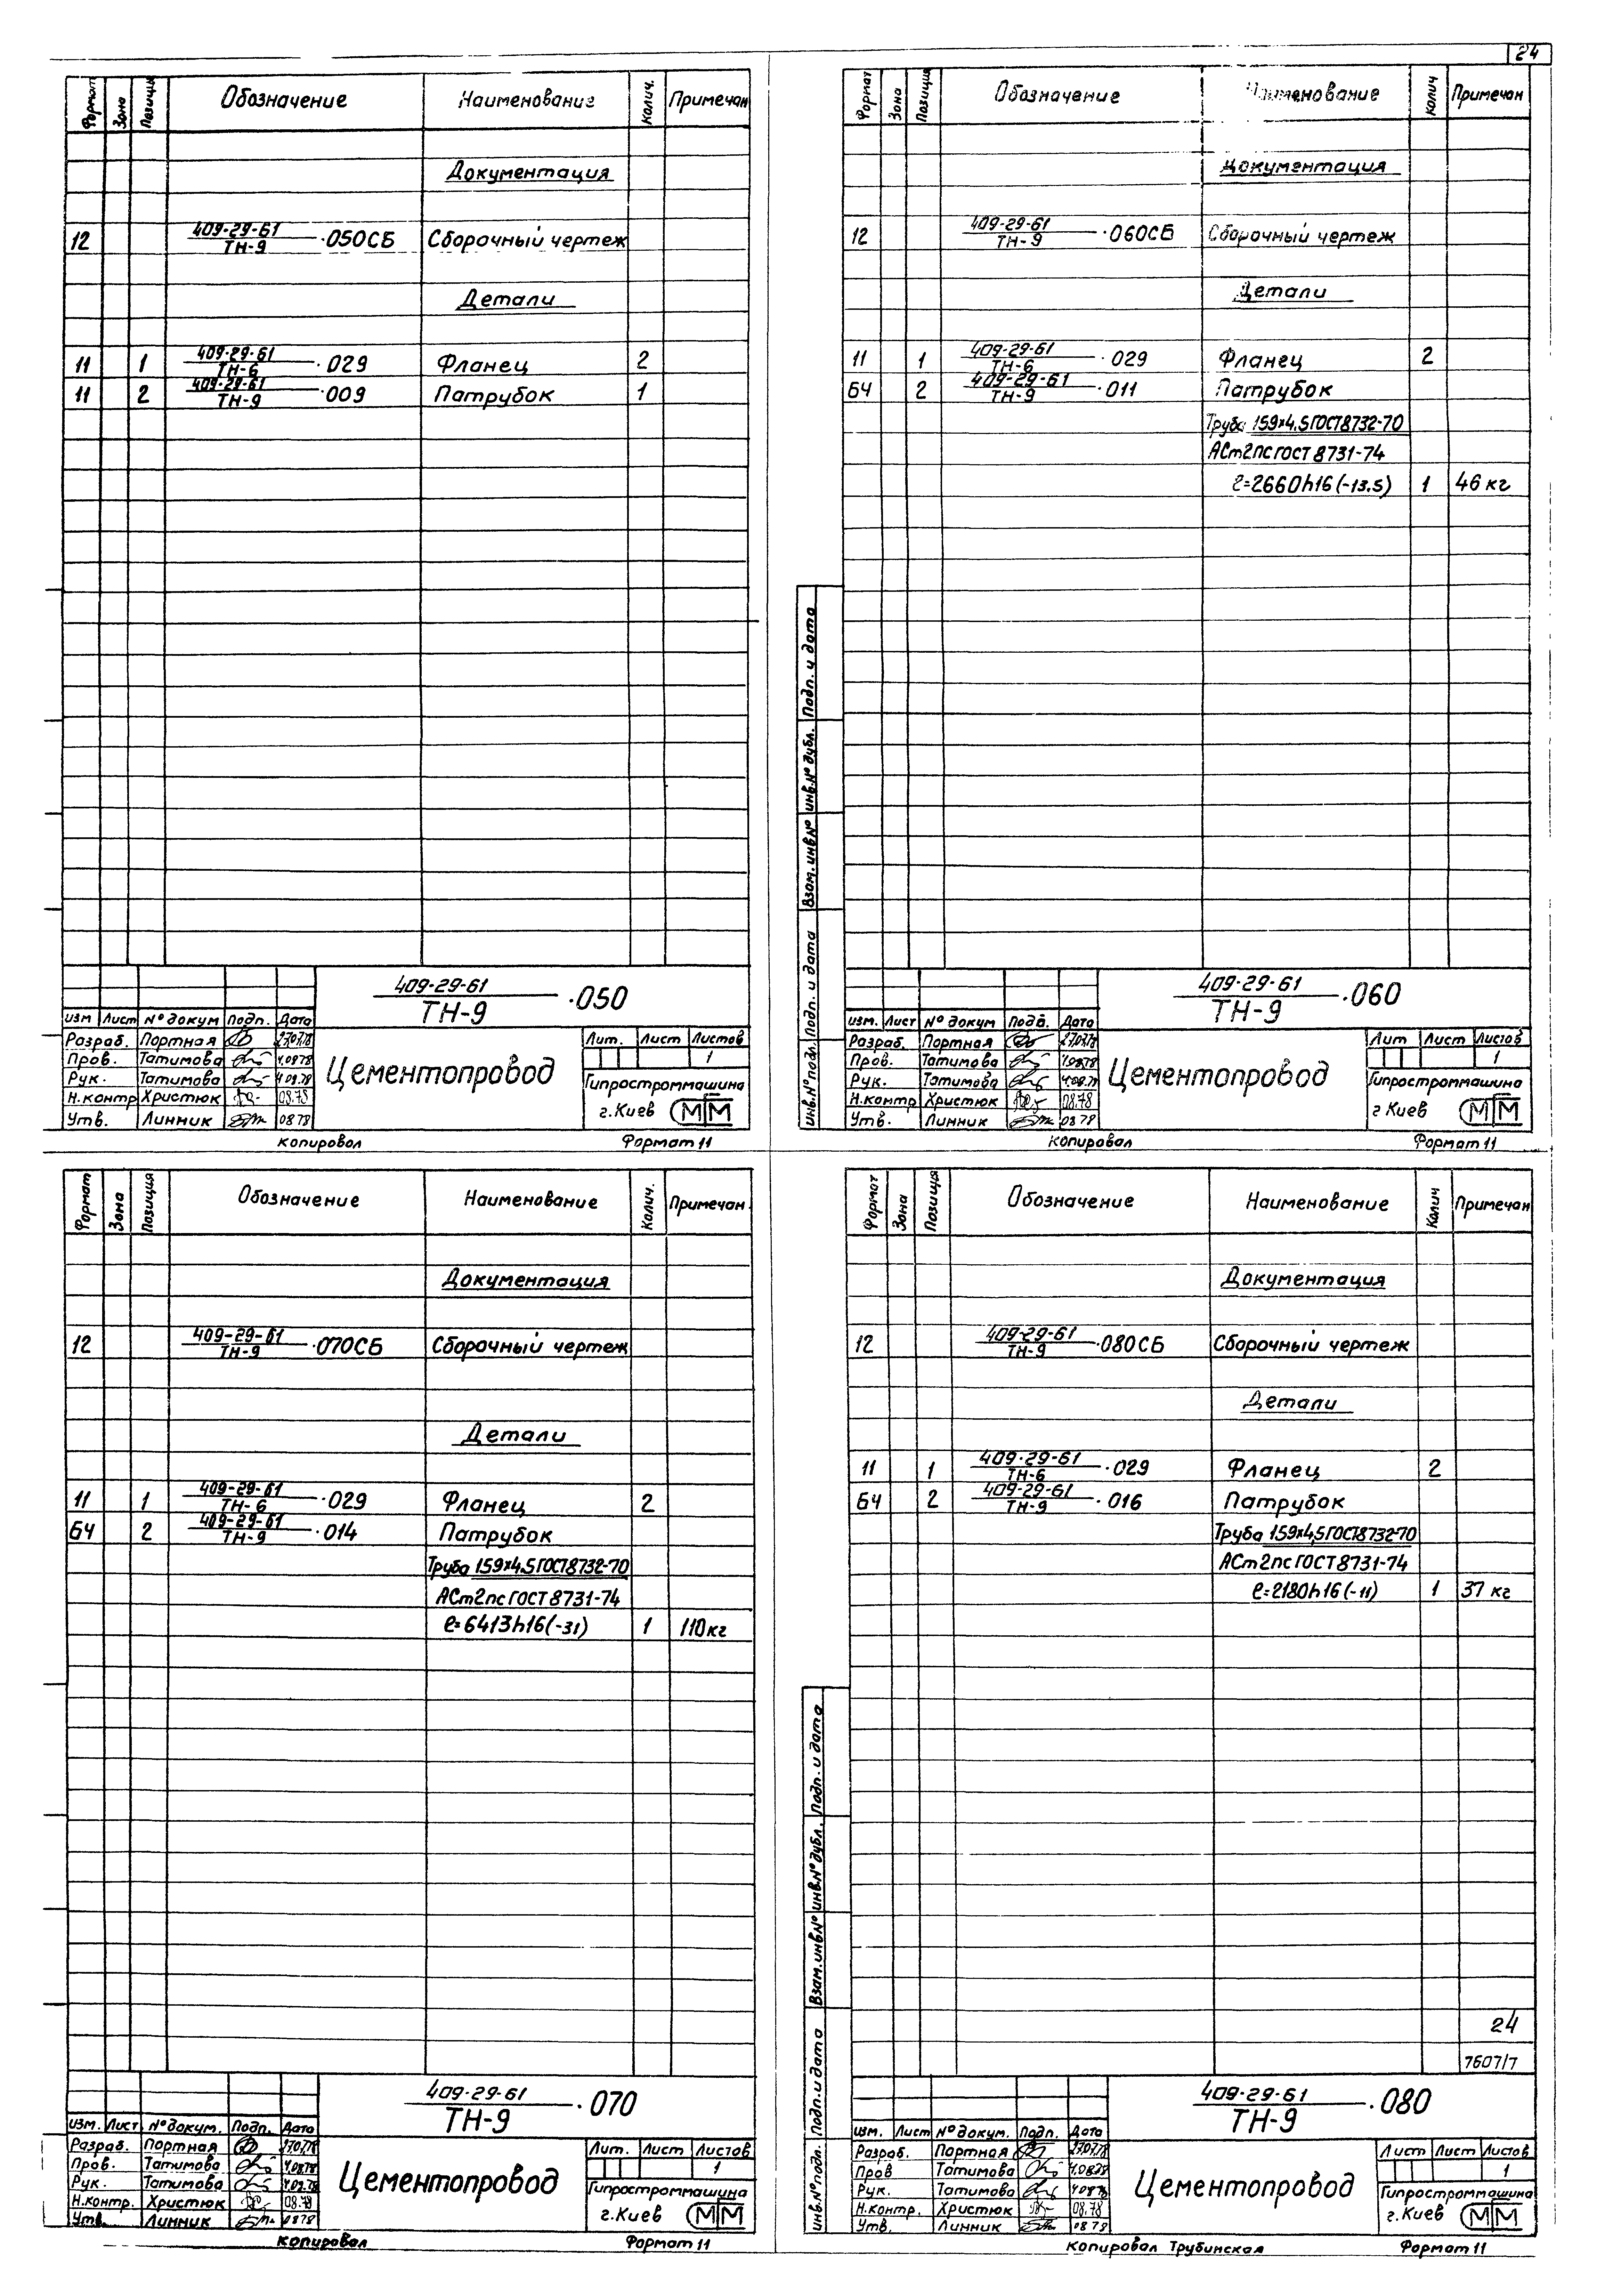 24
Формат Зона Позиция Обозначение Наименование Колич. Примечан
Документация
12 409-29-61/ТН-9 ·050СБ Сборочный чертеж
Детали
11 1 409-29-61/ТН-6 ·029 Фланец 2
11 2 409-29-61/ТН-9 ·009 Патрубок 1
409-29-61/ТН-9 ·050
Изм Лист № докум Подп. Дата
Разраб. Портная 27.07.78
Пров. Татимова 4.08.78
Рук. Татимова 4.08.78
Н.контр Христюк 08.78
Утв. Линник 08 78
Цементопровод
Лит. Лист Листов
1
Гипростроммашина
г.Киев ММ
Копировал Формат 11
Формат Зона Позиция Обозначение Наименование Колич Примечан
Документация
12 409-29-61/ТН-9 ·060СБ Сборочный чертеж
Детали
11 1 409-29-61/ТН-6 ·029 Фланец 2
БЧ 2 409-29-61/ТН-9 ·011 Патрубок
Труба 159×4,5 ГОСТ 8732-70
АСт2пс ГОСТ 8731-74
ℓ=2660h16(-13.5) 1 46 кг
Инв.№ подл. Подп. и дата Взам. инв.№ Инв.№ дубл. Подп. и дата
409-29-61/ТН-9 ·060
Изм. Лист № докум Подп. Дата
Разраб. Портная 27.07.78
Пров. Татимова 4.08.78
Рук. Татимова 4.08.78
Н.контр Христюк 08.78
Утв. Линник 08 78
Цементопровод
Лит Лист Листов
1
Гипростроммашина
г Киев ММ
Копировал Формат 11
Формат Зона Позиция Обозначение Наименование Колич. Примечан
Документация
12 409-29-61/ТН-9 ·070СБ Сборочный чертеж
Детали
11 1 409-29-61/ТН-6 ·029 Фланец 2
БЧ 2 409-29-61/ТН-9 ·014 Патрубок
Труба 159×4,5 ГОСТ 8732-70
АСт2пс ГОСТ 8731-74
ℓ=6413h16(-31) 1 110кг
409-29-61/ТН-9 ·070
Изм. Лист № докум. Подп. Дата
Разраб. Портная 27.07.78
Пров. Татимова 4.08.78
Рук. Татимова 4.08.78
Н.контр. Христюк 08.78
Утв. Линник 08 78
Цементопровод
Лит. Лист Листов
1
Гипростроммашина
г.Киев ММ
Копировал Формат 11
Формат Зона Позиция Обозначение Наименование Колич Примечан
Документация
12 409-29-61/ТН-9 ·080СБ Сборочный чертеж
Детали
11 1 409-29-61/ТН-6 ·029 Фланец 2
БЧ 2 409-29-61/ТН-9 ·016 Патрубок
Труба 159×4,5 ГОСТ 8732-70
АСт2пс ГОСТ 8731-74
ℓ=2180h16(-11) 1 37 кг
24
7607/7
Инв.№ подл. Подп. и дата Взам. инв.№ Инв.№ дубл. Подп. и дата
409-29-61/ТН-9 ·080
Изм. Лист № докум. Подп. Дата
Разраб. Портная 27.07.78
Пров Татимова 4.08.78
Рук. Татимова 4.08.78
Н.контр. Христюк 08.78
Утв. Линник 08 78
Цементопровод
Лист Лист Листов
1
Гипростроммашина
г.Киев ММ
Копировал Трубинская Формат 11